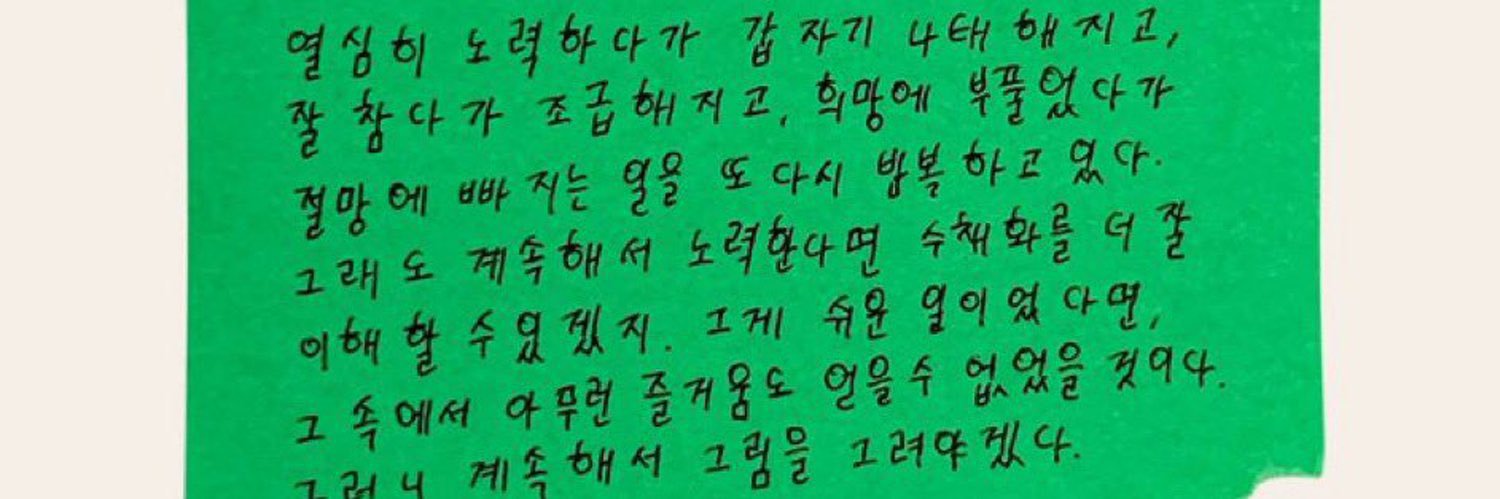 열심히 노력하다가 갑자기 나태해지고,
잘 참다가 조급해지고, 희망에 부풀었다가
절망에 빠지는 일을 또 다시 반복하고 있다.
그래도 계속해서 노력한다면 수채화를 더 잘
이해할 수 있겠지. 그게 쉬운 일이었다면,
그 속에서 아무런 즐거움도 얻을 수 없었을 것이다.
그러니 계속해서 그림을 그려야겠다.